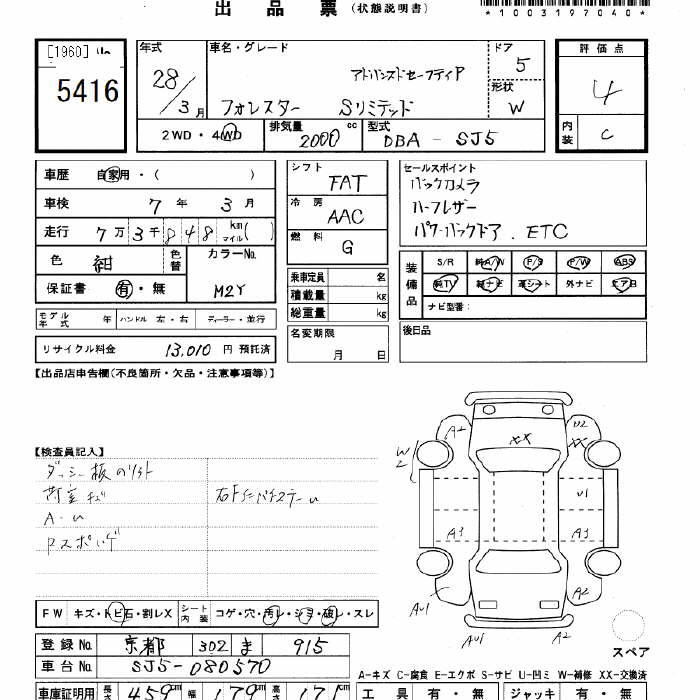 出 品 票 (状態説明書)
*1003197040*
[1960]
5416
年式 28/3月
車名・グレード
アドバンスドセーフティP
フォレスター Sリミテッド
ドア 5
形状 W
2WD・4WD
排気量 2000 cc
型式 DBA - SJ5
評価点
4
内装 C
車歴 自家用・( )
車検 7年 3月
走行 7万3千848 km マイル( )
色 紺 色替
カラーNo. M2Y
保証書 有・無
モデル年式 年 ハンドル 左・右 ディーラー・並行
リサイクル料金 13,010 円 預託済
シフト FAT
冷房 AAC
燃料 G
乗車定員 名
積載量 kg
総重量 kg
名変期限
月 日
セールスポイント
バックカメラ
ハーフレザー
パワーバックドア . ETC
装備品 S/R 純A/W P/S P/W ABS
純TV 純ナビ 革シート 外ナビ エアB
ナビ型番:
後日品
【出品店申告欄(不良箇所・欠品・注意事項等)】
【検査員記入】
A-U
A2 XX U2 XX
W2
U1
A3 A3
AU1 A2
AU1 A2
スペア
FW キズ・トビ石・割レX シート内装 コゲ・穴・汚レ・シミ・破レ・スレ
登録No. 京都 302 ま 915
車台No. SJ5-080570
車庫証明用 長さ 459 cm 幅 179 cm 高さ 171 cm
A-キズ C-腐食 E-エクボ S-サビ U-凹ミ W-補修 XX-交換済
工具 有・無 ジャッキ 有・無